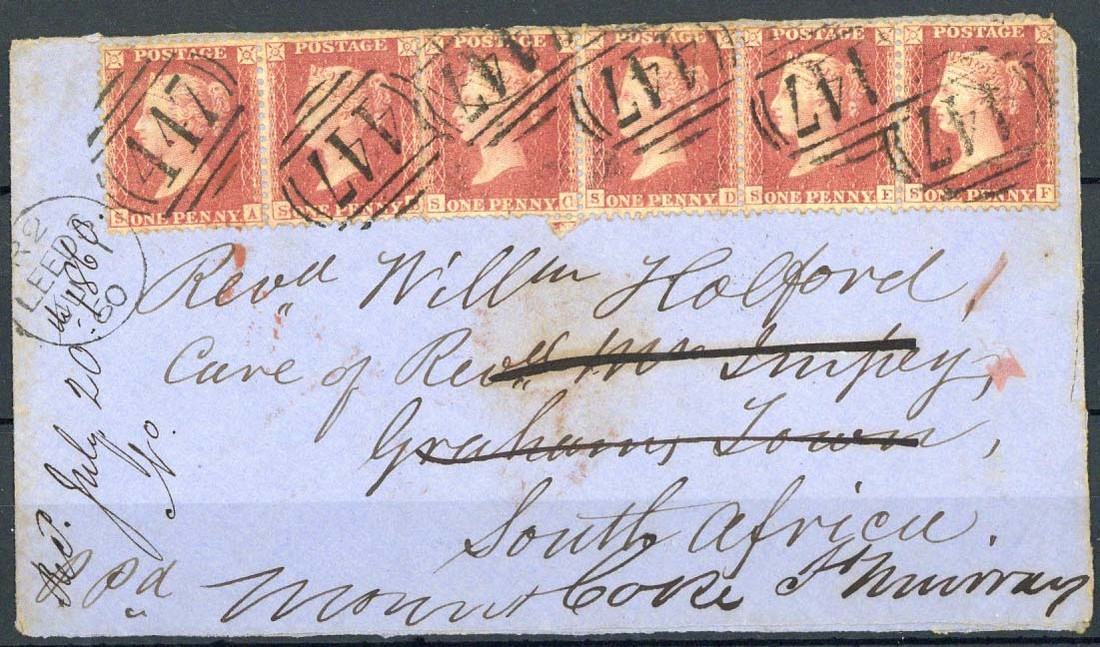 POSTAGE POSTAGE POSTAGE POSTAGE POSTAGE POSTAGE
447 447 447 447 447 447
S ONE PENNY A S ONE PENNY S ONE PENNY C S ONE PENNY D S ONE PENNY E S ONE PENNY F
LEEDS
60
Revd Willm Holford,
Care of Revd Mr Impey,
Grahams Town,
South Africa.
Mount Coke Ft Murray
Pd
July 20th 1860.